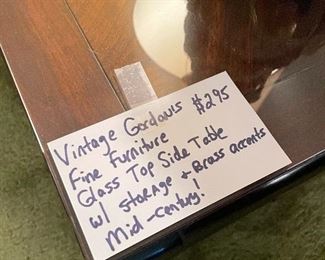 Vintage Gordon's $295
Fine Furniture
Glass Top Side Table
w/ storage + Brass accents
Mid-century!